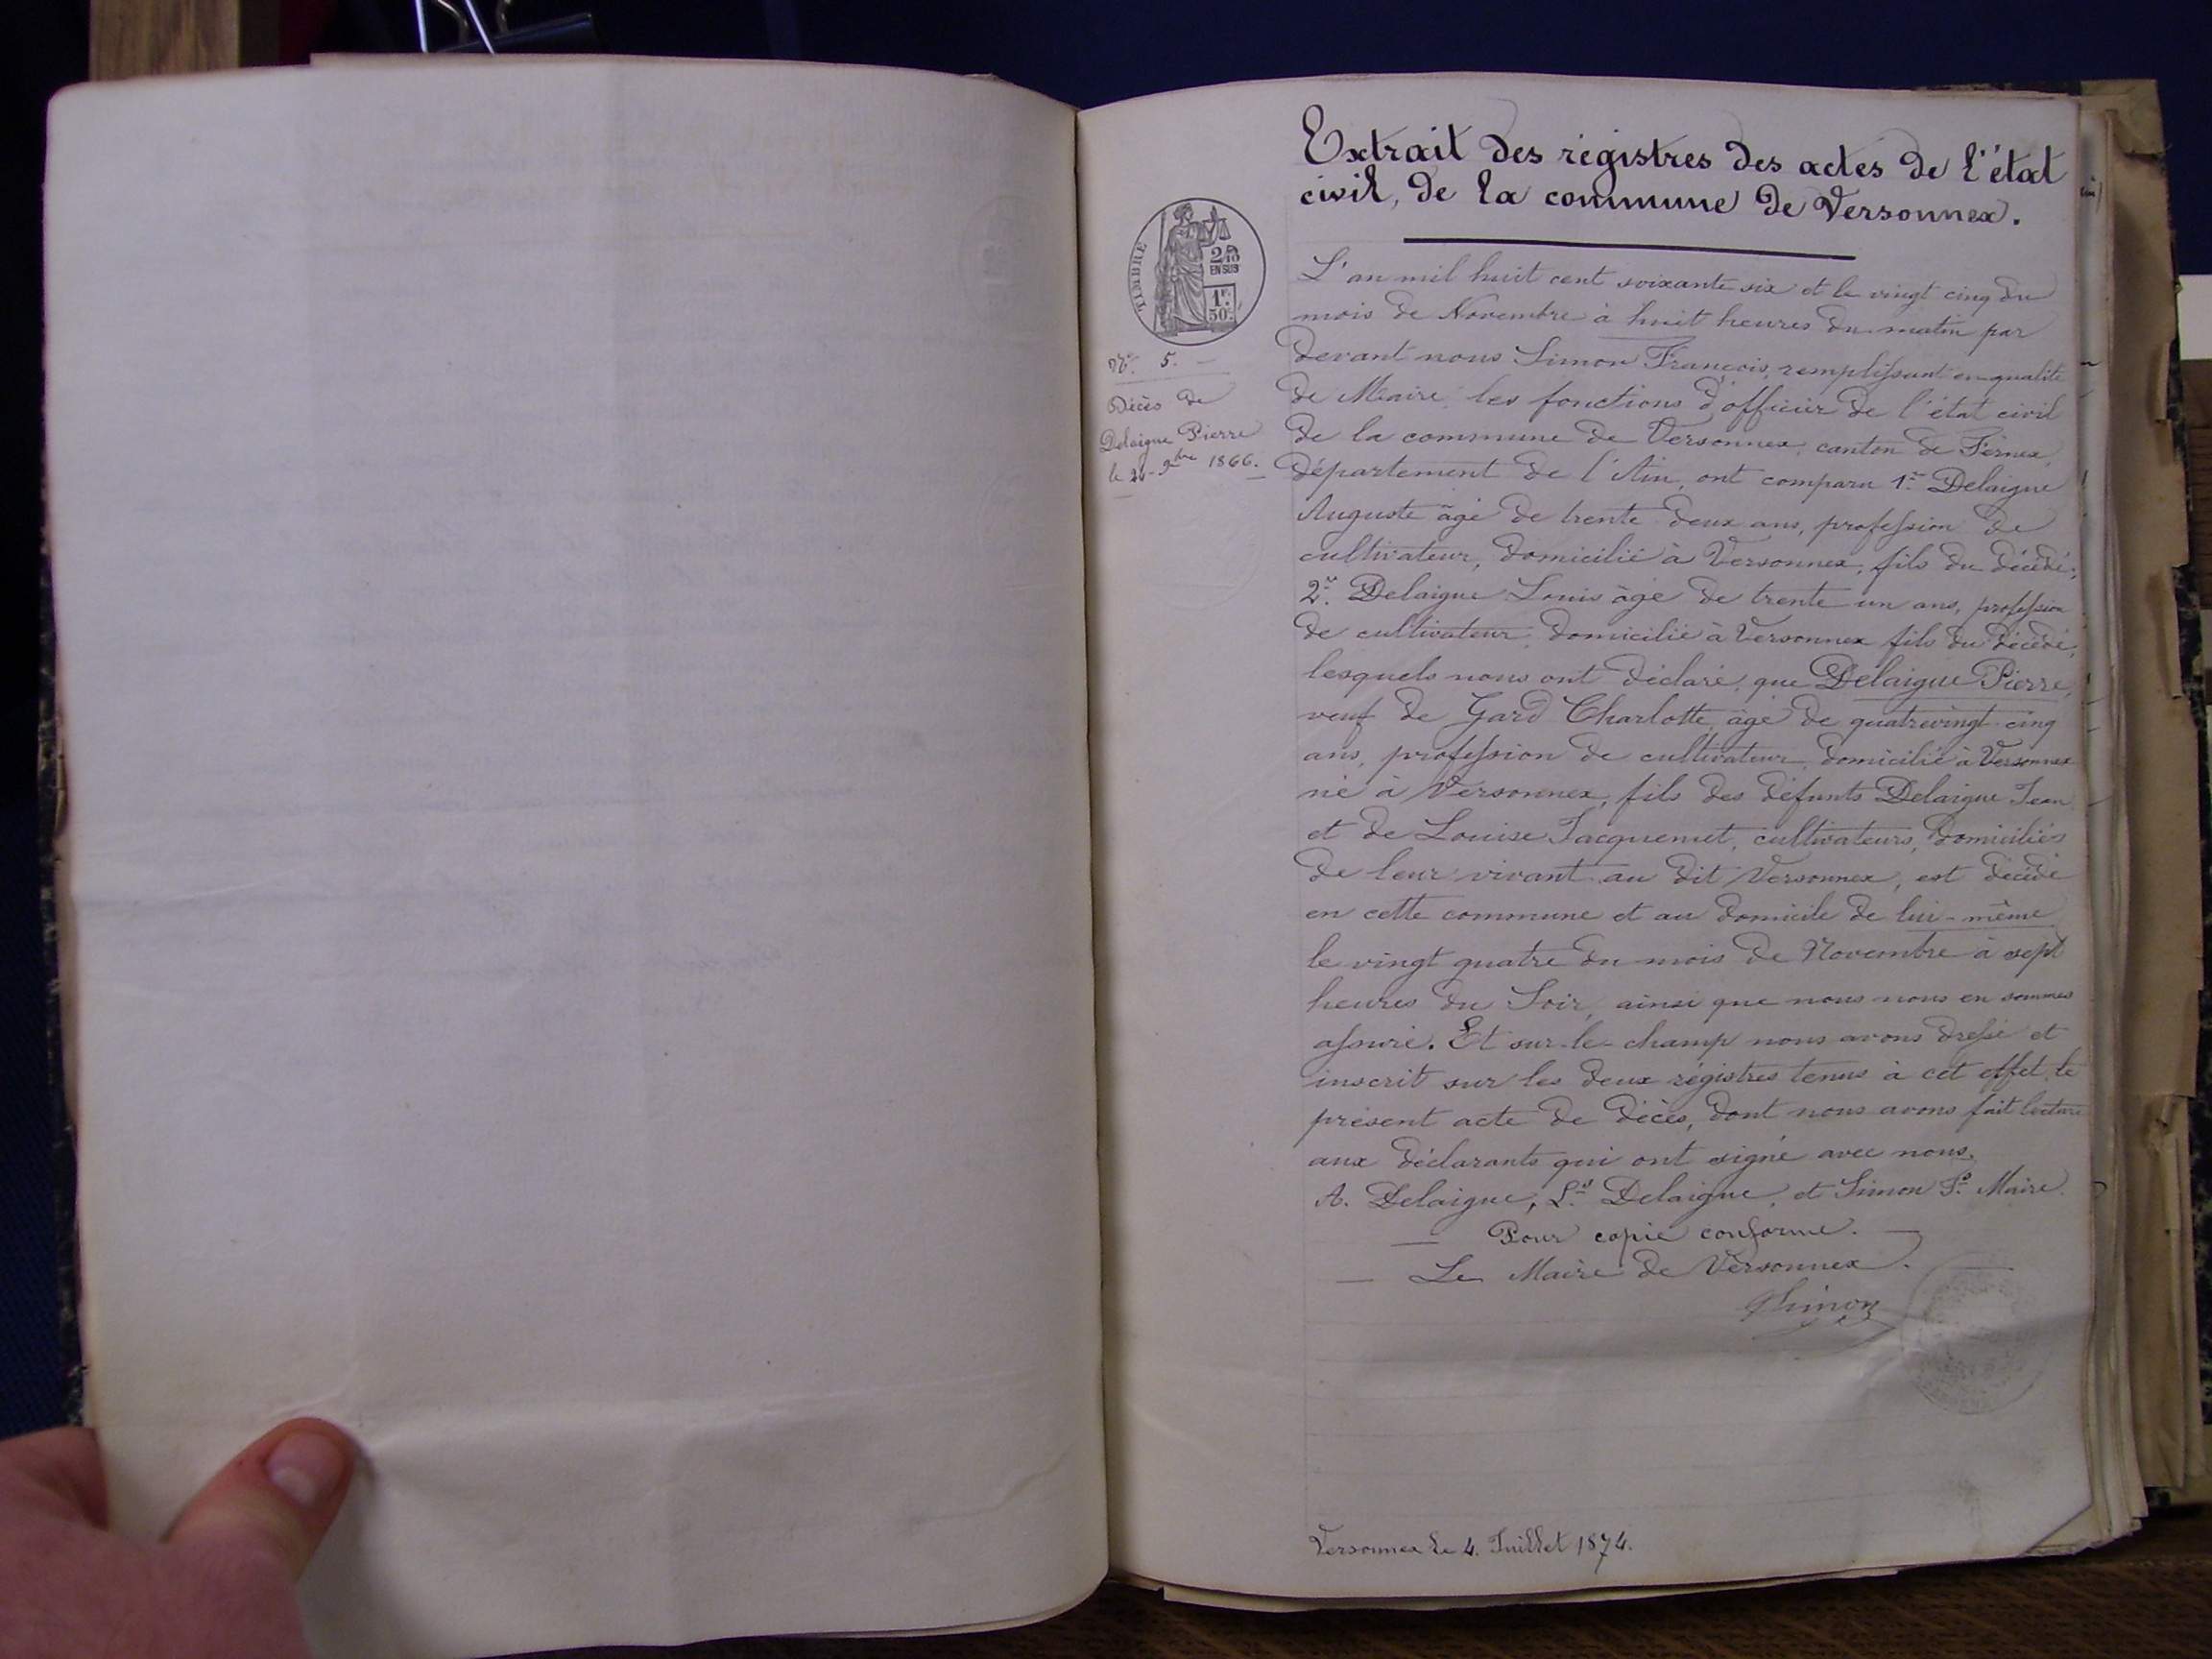 Extrait des régistres des actes de l'état
civil, de la commune de Versonnex.
TIMBRE
2/10
EN SUS
1F.
50c.
N° 5.
Décès de
Delaigue Pierre
le 9bre 1866.
L'an mil huit cent soixante six et le vingt cinq du
mois de Novembre à huit heures du matin par
devant nous Simon François, remplissant en qualité
de Maire les fonctions d'officier de l'état civil
de la commune de Versonnex, canton de Fernex,
département de l'Ain, ont comparu 1er Delaigue
Auguste âgé de trente deux ans, profession de
cultivateur, domicilié à Versonnex, fils du décédé;
2e. Delaigue Louis âgé de trente un ans, profession
de cultivateur, domicilié à Versonnex fils du décédé,
lesquels nous ont déclaré, que Delaigue Pierre,
veuf de Gard Charlotte, âgé de quatrevingt cinq
ans, profession de cultivateur, domicilié à Versonnex
né à Versonnex, fils des défunts Delaigue Jean
et de Louise Jacquemet, cultivateurs, domiciliés
de leur vivant au dit Versonnex, est décédé
en cette commune et au domicile de lui-même
le vingt quatre du mois de Novembre à sept
heures du Soir, ainsi que nous nous en sommes
assuré. Et sur-le-champ nous avons dressé et
inscrit sur les deux régistres tenus à cet effet, le
présent acte de décès, dont nous avons fait lecture
aux déclarants qui ont signé avec nous.
A. Delaigue, Ls Delaigue, et Simon Fs Maire.
Pour copie conforme.
Le Maire de Versonnex.
Simon
Versonnex le 4. Juillet 1874.